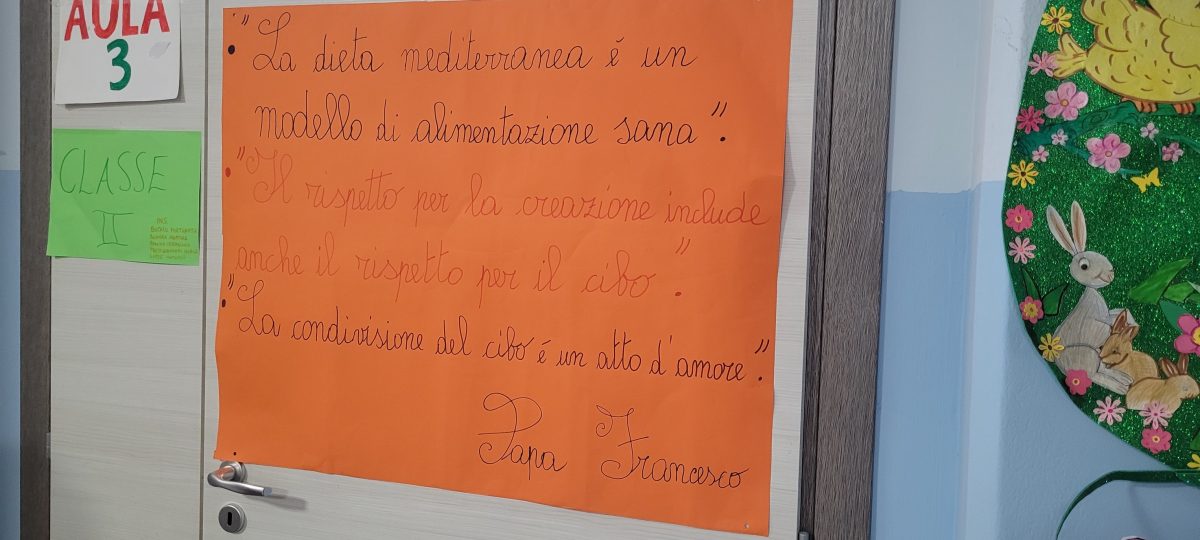 AULA
3
CLASSE
II
INS.
"La dieta mediterranea é un
modello di alimentazione sana".
"Il rispetto per la creazione include
anche il rispetto per il cibo".
"La condivisione del cibo é un atto d'amore".
Papa Francesco